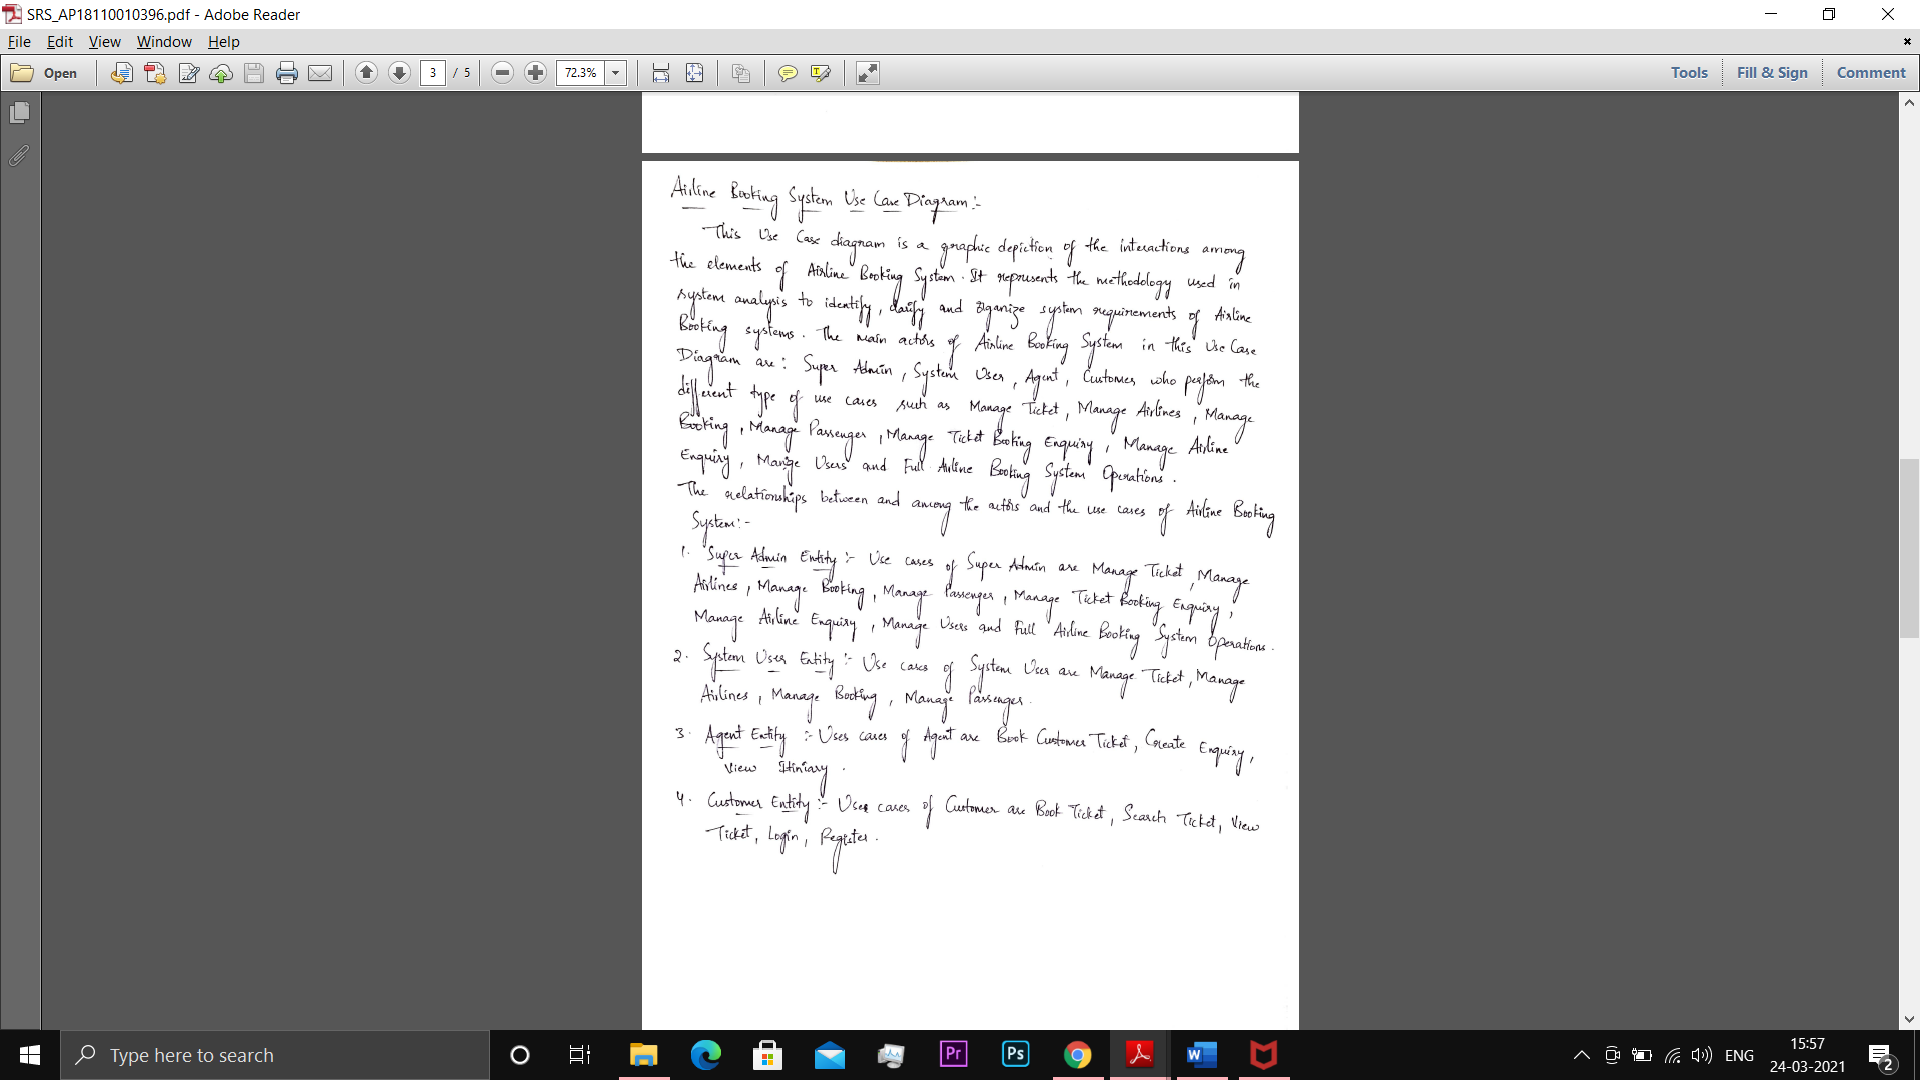 SRS_AP18110010396.pdf - Adobe Reader
File Edit View Window Help
Open 3 / 5 72.3% Tools Fill & Sign Comment
Airline Booking System Use Case Diagram:-
This Use Case diagram is a graphic depiction of the interactions among
the elements of Airline Booking System. It represents the methodology used in
system analysis to identify, clarify and organize system requirements of Airline
Booking systems. The main actors of Airline Booking System in this Use Case
Diagram are: Super Admin, System User, Agent, Customer who perform the
different type of use cases such as Manage Ticket, Manage Airlines, Manage
Booking, Manage Passenger, Manage Ticket Booking Enquiry, Manage Airline
Enquiry, Manage Users and Full Airline Booking System Operations.
The relationships between and among the actors and the use cases of Airline Booking
System:-
1. Super Admin Entity :- Use cases of Super Admin are Manage Ticket, Manage
Airlines, Manage Booking, Manage Passenger, Manage Ticket Booking Enquiry,
Manage Airline Enquiry, Manage Users and Full Airline Booking System Operations.
2. System User Entity :- Use cases of System User are Manage Ticket, Manage
Airlines, Manage Booking, Manage Passenger.
3. Agent Entity :- Uses cases of Agent are Book Customer Ticket, Create Enquiry,
View Itiniary.
4. Customer Entity :- Uses cases of Customer are Book Ticket, Search Ticket, View
Ticket, Login, Register.
Type here to search Pr Ps W ENG 15:57
24-03-2021 2